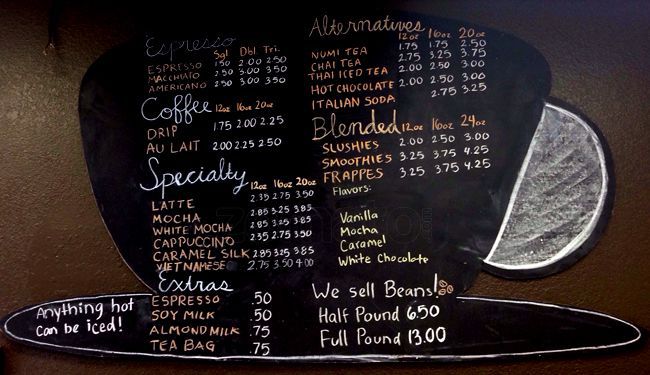 Espresso
Sgl Dbl. Tri.
ESPRESSO 1.50 2.00 2.50
MACCHIATO 2.50 3.00 3.50
AMERICANO 2.50 3.00 3.50
Coffee 12oz 16oz 20oz
DRIP 1.75 2.00 2.25
AU LAIT 2.00 2.25 2.50
Specialty 12oz 16oz 20oz
LATTE 2.35 2.75 3.50
MOCHA 2.85 3.25 3.85
WHITE MOCHA 2.85 3.25 3.85
CAPPUCCINO 2.35 2.75 3.50
CARAMEL SILK 2.85 3.25 3.85
VIETNAMESE 2.75 3.50 4.00
Extras
ESPRESSO .50
SOY MILK .50
ALMOND MILK .75
TEA BAG .75
Anything hot
can be iced!
Alternatives
12oz 16oz 20oz
NUMI TEA 1.75 1.75 2.50
CHAI TEA 2.75 3.25 3.75
THAI ICED TEA 2.00 2.50 3.00
HOT CHOCOLATE 2.00 2.50 3.00
ITALIAN SODA 2.75 3.25
Blended 12oz 16oz 24oz
SLUSHIES 2.00 2.50 3.00
SMOOTHIES 3.25 3.75 4.25
FRAPPES 3.25 3.75 4.25
Flavors:
Vanilla
Mocha
Caramel
White Chocolate
We sell Beans!
Half Pound 6.50
Full Pound 13.00